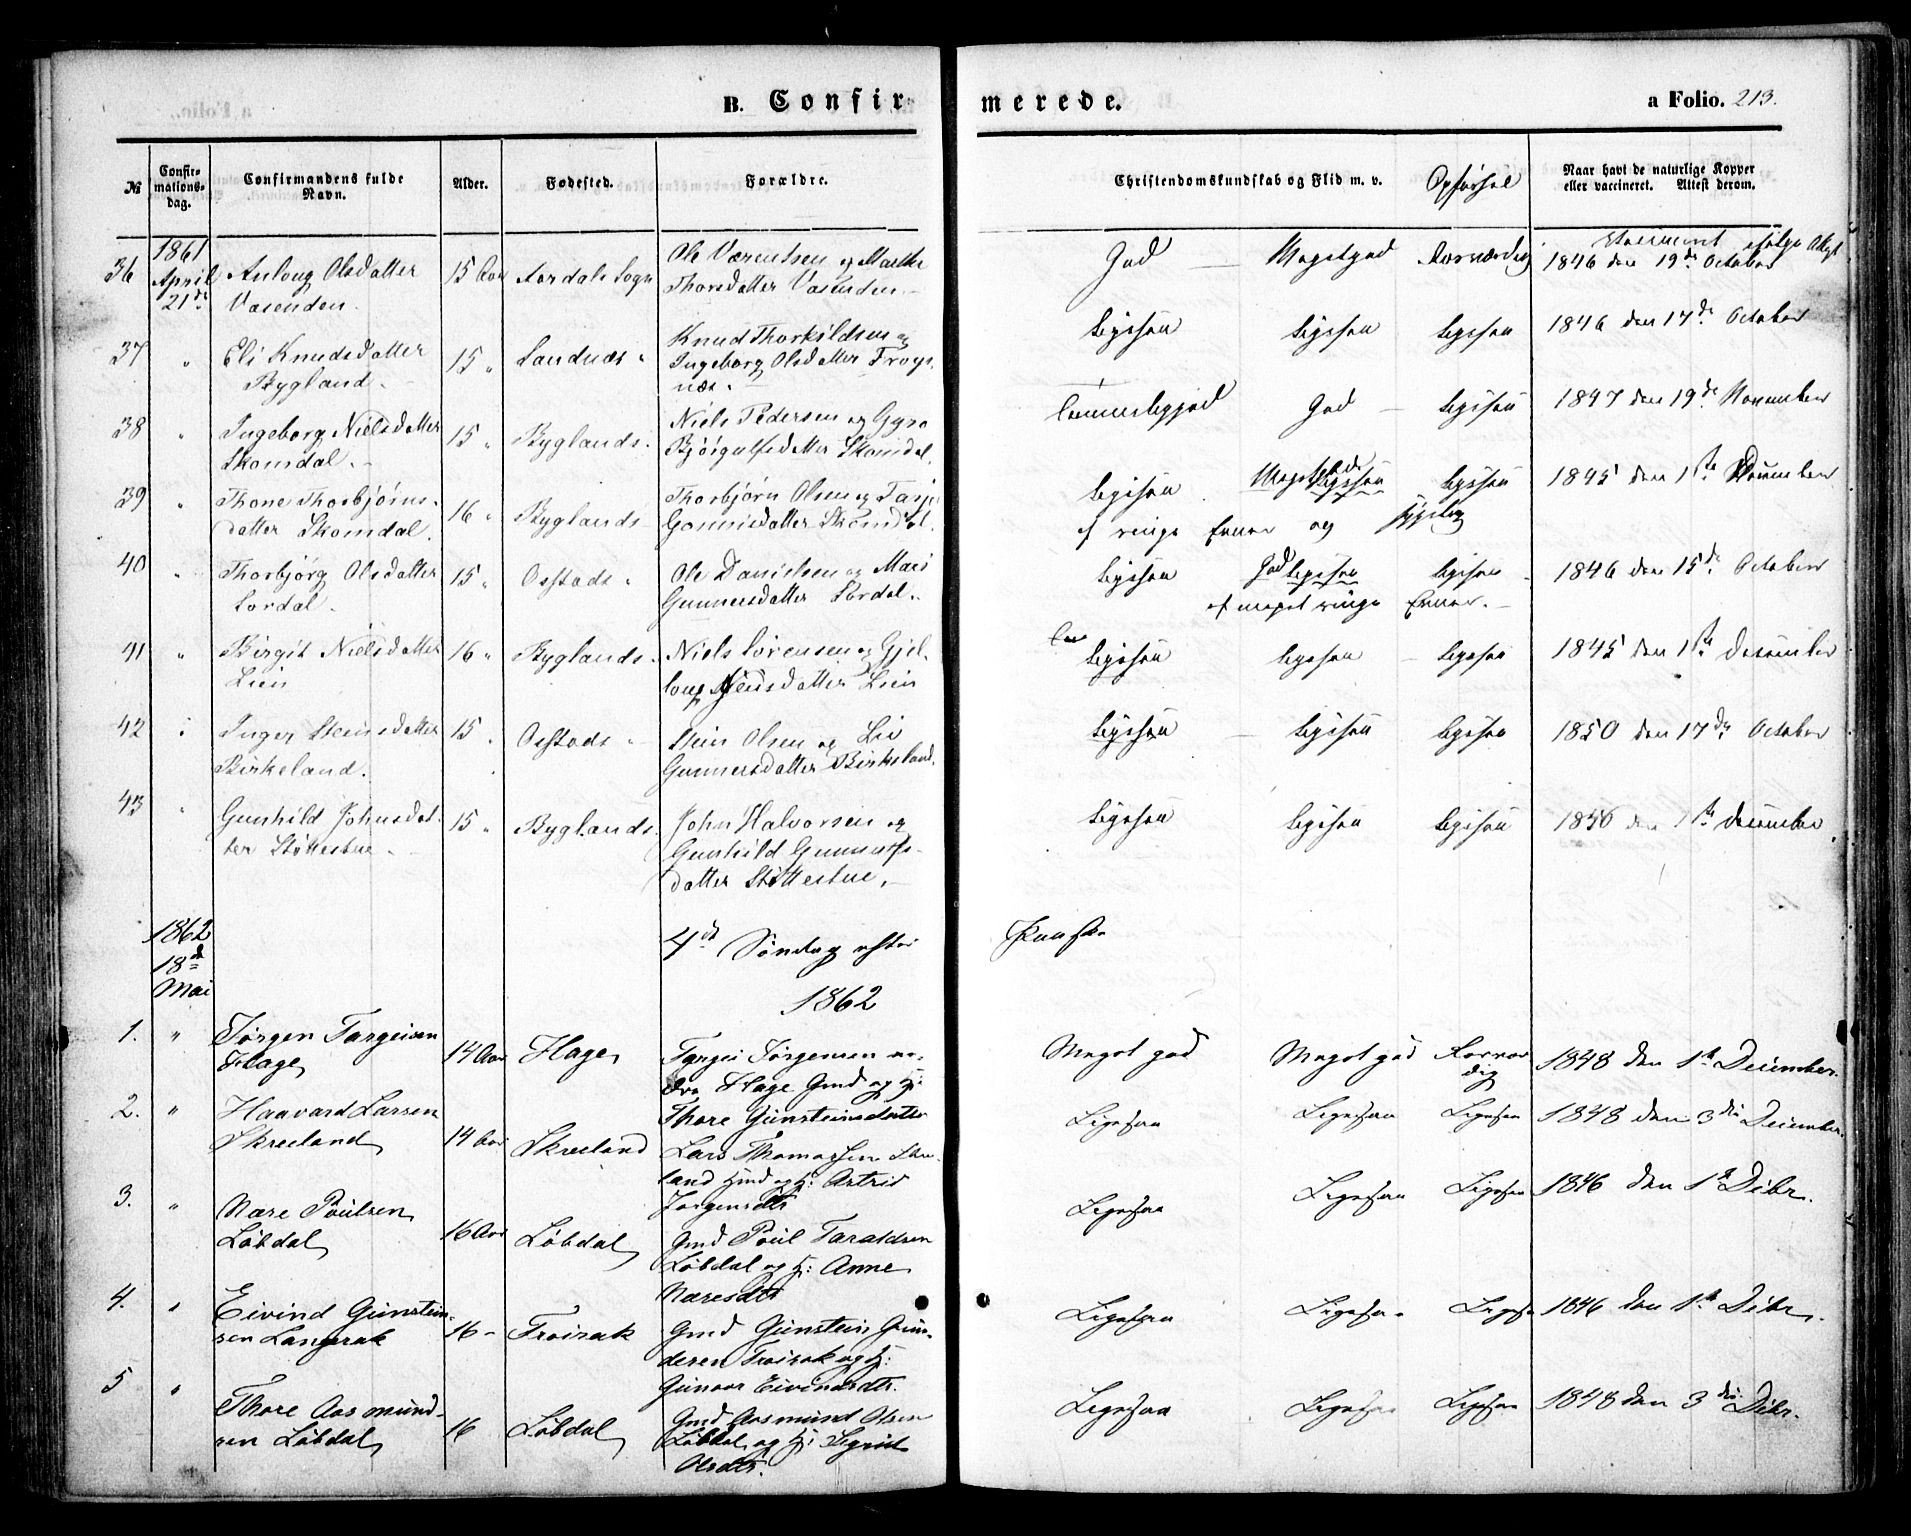 B. Confir-
merede.
a Folio. 213.
№
Confir-
mations-
dag.
Confirmandens fulde
Navn.
Alder.
Fødested.
Forældre.
Christendomskundskab og Flid m. v.
Opførsel
Naar havt de naturlige Kopper
eller vaccineret. Attest derom.
1861
April
21de
36
Anlaug Olsdatter
Vasenden.
15 Aar
Aardals Sogn
Ole Værentsen og Marthe
Thorsdatter Vasenden.
God
Meget god
Roesværdig
1846 den 19de October
37 "
Eli Knudsdatter
Bygland.
15 "
Sandnæs "
Knud Thorkildsen og
Ingeborg Olsdatter Frøys-
næs.
Ligesaa
Ligesaa
Ligesaa
1846 den 17de October
38 "
Ingeborg Nielsdatter
Skomdal.
15 "
Byglands
Niels Pedersen og Gyro
Bjørgulfsdatter Skomdal.
Temmeliggod
God
Ligesaa
1847 den 19de November
39 "
Thone Thorbjørns-
datter Skomdal.
16 "
Byglands
Thorbjørn Olsen og Tarje
Gonnisdatter Skomdal.
Ligesaa
Meget god
Ligesaa
af ringe Evner og
1845 den 1ste December
40 "
Thorbjørg Olsdatter
Lordal.
15 "
Ostads "
Ole Danielsen og Mari
Gunnersdatter Lordal.
Ligesaa
God
Ligesaa
af meget ringe Evner.
1846 den 15de October
41 "
Birgit Nielsdatter
Lien
16 "
Byglands
Niels Sørensen og Gjel-
loug Jensdatter Lien
Ligesaa
Ligesaa
Ligesaa
1845 den 1ste December
42 "
Inger Steinsdatter
Birkeland.
15 "
Ostads
Stein Olsen og Liv
Gunnersdatter Birkeland.
Ligesaa
Ligesaa
Ligesaa
1850 den 17de October
43 "
Gunhild Johnsdat-
ter Støttestue
15 "
Byglands
John Halvorsen og
Gunhild Gunnulfs-
datter Støttestue.
Ligesaa
Ligesaa
Ligesaa
1850 den 1ste December
1862
18de
Mai
4de Søndag efter
Paaske
1862
1. "
Jørgen Targeisen
Hage
14 Aar
Hage
Targei Jørgensen ne-
dre Hage Gmd og H:
Thore Gunsteinsdatter
Meget god
Meget god
Roesvær-
dig
1848 den 1ste December.
2. "
Haavard Larsen
Skreeland
14 Aar
Skreeland
Lars Thomassen Skre-
land Gmd og H: Astrid
Jørgensdtr
Ligesaa
Ligesaa
Ligesaa
1848 den 3die December.
3. "
Nære Poulsen
Løbdal
16 Aar
Løbdal
Gmd Poul Taraldsen
Løbdal og H: Anne
Næresdtr
Ligesaa
Ligesaa
Ligesaa
1846 den 1ste Dcbr.
4. "
Eivind Gunstein-
sen Langerak
16 -
Froirak
Gmd Gunstein Gun-
dersen Froirak og H:
Gunvor Eivindsdtr.
Ligesaa
Ligesaa
Ligesaa
1846 den 1ste Dcbr.
5 "
Thore Aasmund-
sen Løbdal
16
Løbdal
Gmd Aasmund Olsen
Løbdal og H: Sigrid
Olsdtr.
Ligesaa
Ligesaa
Ligesaa
1848 den 3die Dcbr.